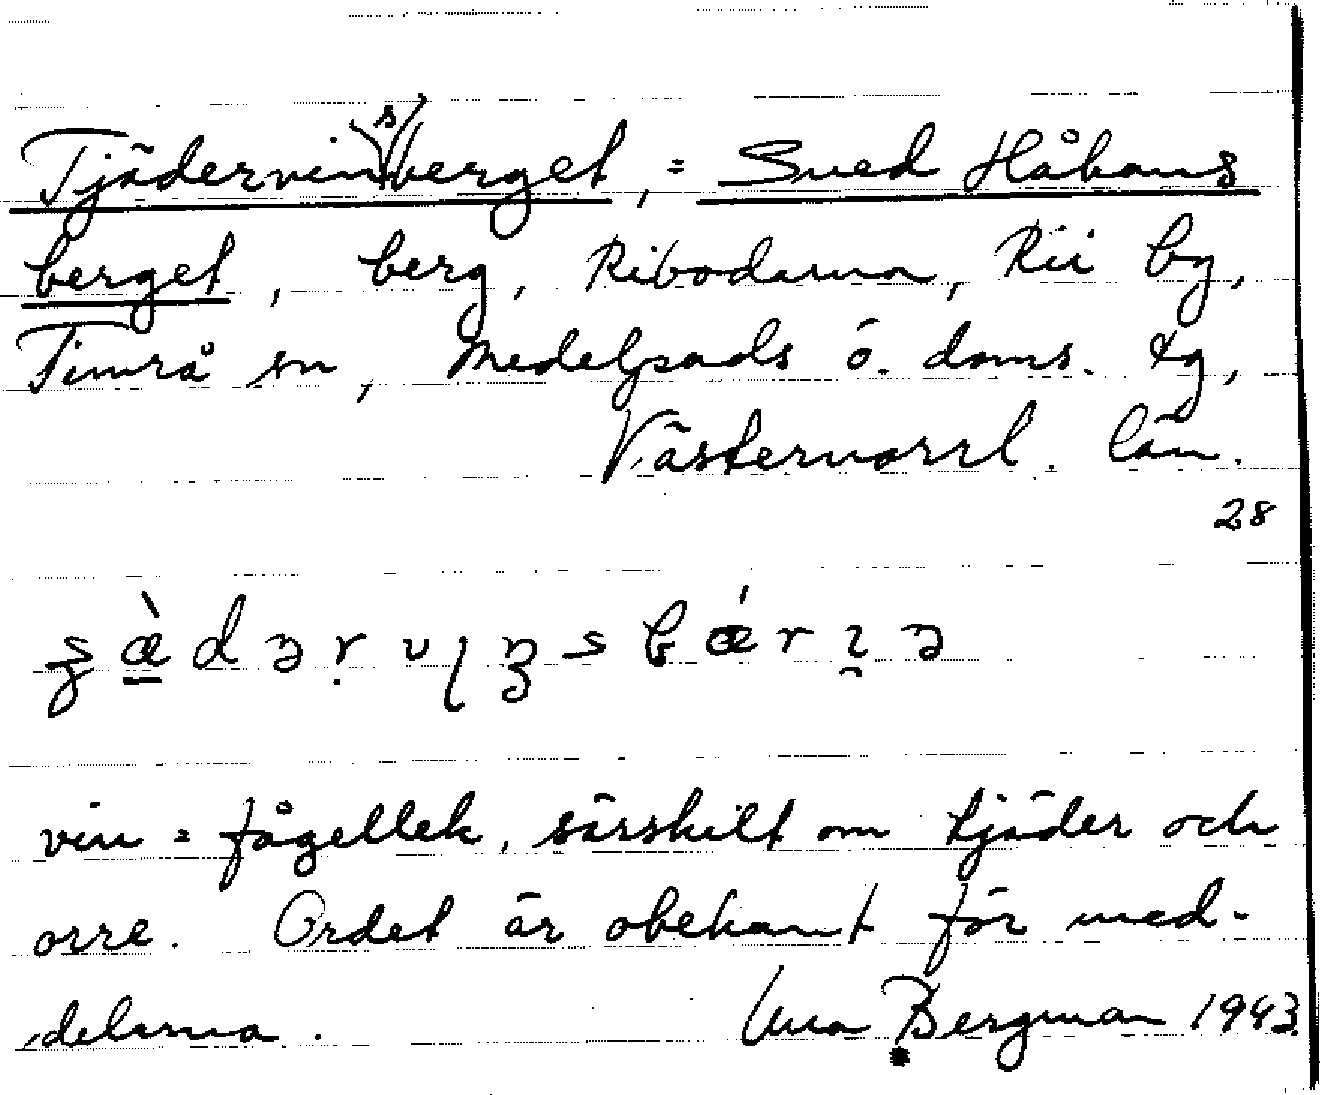 Tjädervinsberget, = Sved Håkans
berget, berg, Ribodarna, Rii by,
Timrå sn, Medelpads ö. doms. tg,
Västernorrl. län.
28
vin = fågellek, särskilt om tjäder och
orre. Ordet är obekant för med-
delarna. Una Bergman 1943